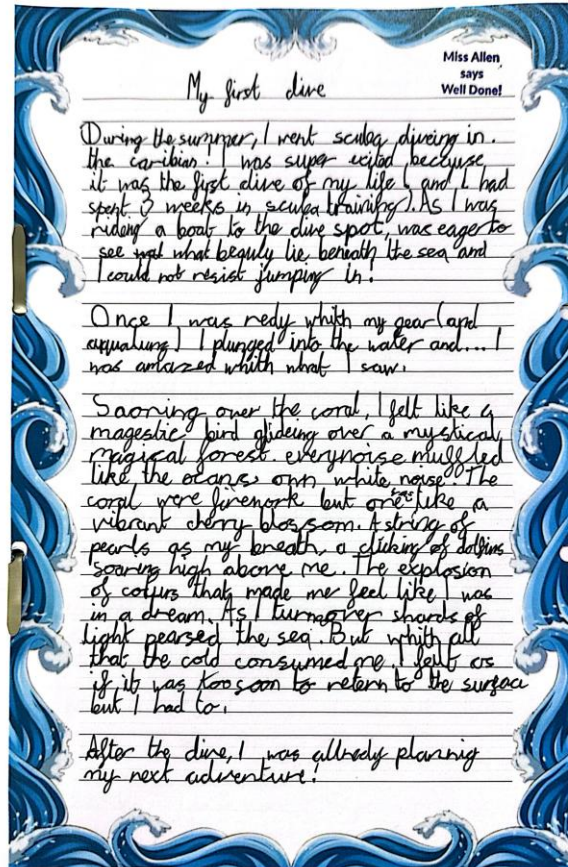 Miss Allen
says
Well Done!
My first dive
During the summer, I went scuba diveing in.
the caribian! I was super exited because
it was the first dive of my life (and I had
spent 3 weeks in scuba training). As I was
rideing a boat to the dive spot, was eager to
see what beauty lie beneath the sea and
I could not resist jumping in!
Once I was redy whith my gear (and
aqualung) I plunged into the water and... I
was amazed whith what I saw.
Saoning over the coral, I felt like a
magestic bird glideing over a mystical,
magical forest. everynoise muffled
like the oceans own white noise. The
coral were firework but one was like a
vibrant cherry blossom. A string of
pearls as my breath, a clicking of dolfins
soaring high above me. The explosion
of colurs that made me feel like I was
in a dream. As I turn over shards of
light pearsed the sea. But whith all
that the cold consumed me, I felt as
if it was too soon to return to the surface
but I had to.
After the dive, I was allredy plannig
my next adventure!